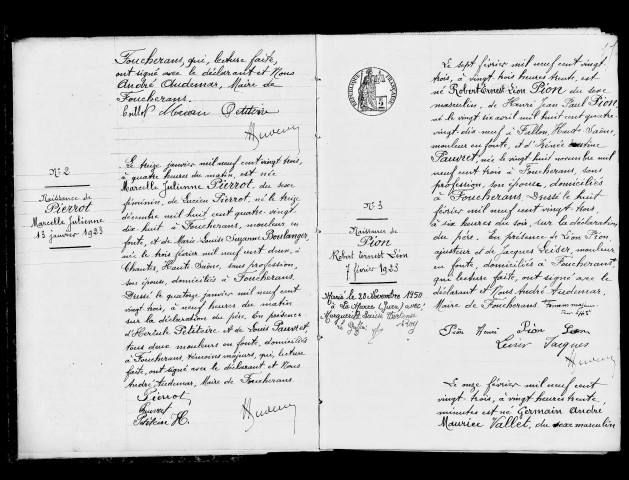 Foucherans, qui, lecture faite,
ont signé avec le déclarant et Nous
André Audemar, Maire de
Foucherans.
Petitein
N° 2
Naissance de
Pierrot
Marcelle Julienne
13 janvier 1923
Le treize janvier mil neuf cent vingt trois,
à quatre heures du matin, est née
Marcelle Julienne Pierrot, du sexe
féminin, de Lucien Pierrot, né le treize
décembre mil huit cent quatre-vingt-
dix huit à Foucherans, mouleur en
fonte, et de Marie Louise Suzanne Boulanger,
née le trois février mil neuf cent deux, à
Haute Saône, sans profession,
son épouse, domiciliés à Foucherans.
Dressé le quatorze janvier mil neuf cent
vingt trois, à neuf heures du matin
sur la déclaration du père. En présence
d'Hercule Petiteire et de Louis Pauvret,
tous deux mouleurs en fonte, domiciliés
à Foucherans, témoins majeurs, qui, lecture
faite, ont signé avec le déclarant et Nous
André Audemar, Maire de Foucherans.
Pierrot
Pauvret
H.
RÉPUBLIQUE FRANÇAISE
2
N° 3
Naissance de
Pion
Robert Ernest Léon
7 février 1923
Marié le 20 Novembre 1950
à (Jura) avec
Marguerite Louise
Le sept février mil neuf cent vingt
trois, à vingt trois heures trente, est
né Robert Ernest Léon Pion du sexe
masculin, de Henri Jean Paul Pion,
né le vingt six avril mil huit cent quatre
vingt dix neuf à Fallon, Haute Saône,
mouleur en fonte, et d'Irénée
Pauvret, née le vingt huit novembre mil
neuf cent trois à Foucherans, sans
profession, son épouse, domiciliés
à Foucherans. Dressé le huit
février mil neuf cent vingt trois,
à six heures du soir, sur la déclaration
du père. En présence de Léon Pion
ajusteur et de Jacques mouleur
en fonte, domiciliés à Foucherans,
qui, lecture faite, ont signé avec le
déclarant et Nous André Audemar,
Maire de Foucherans.
Pion Henri Pion Léon
Jacques
Le onze février mil neuf cent
vingt trois, à vingt heures trente
minutes est né Germain André
Maurice Vallet, du sexe masculin